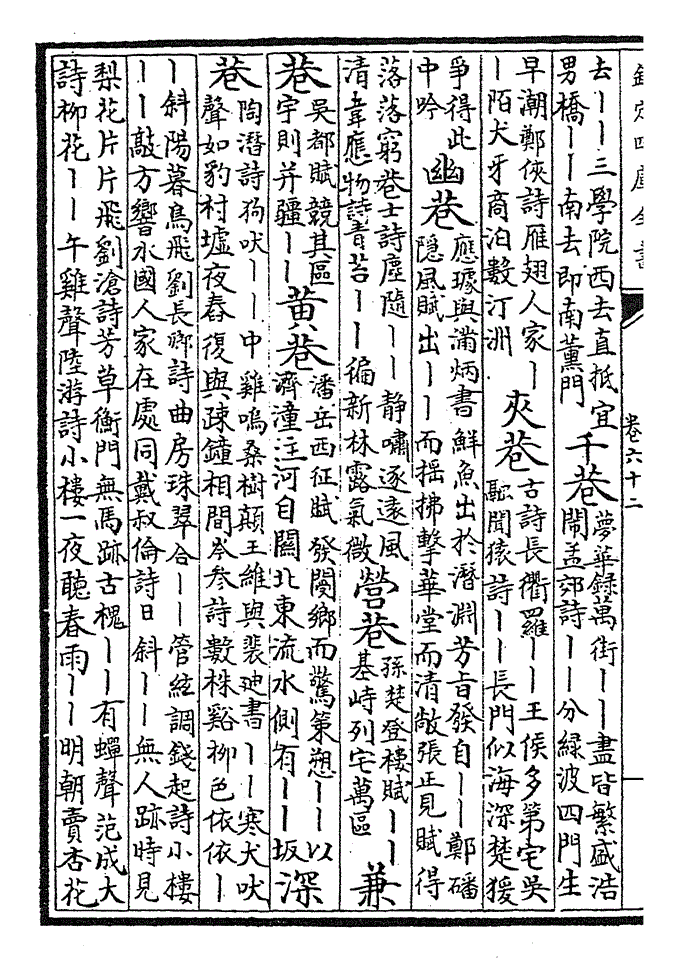 欽定四庫全書
卷六十二
去丨丨三學院西去直抵宜
男橋丨丨南去即南薰門
千巷
夢華録萬街丨丨盡皆繁盛浩
鬧孟郊詩丨丨分緑波四門生
早潮鄭俠詩雁翅人家丨
丨陌犬牙商泊數汀洲
夾巷
古詩長衢羅丨丨王侯多第宅吳
融聞猿詩丨丨長門似海深楚猨
爭得此
中吟
幽巷
應璩與滿炳書鮮魚出於潛淵芳旨發自丨丨鄭磻
隠風賦出丨丨而揺拂擊華堂而清敞張正見賦得
落落窮巷士詩塵隨丨丨静嘯逐遠風
清韋應物詩青苔丨丨徧新林露氣微
營巷
孫楚登樓賦丨丨
基峙列宅萬區
兼
巷
吳都賦競其區
宇則并疆丨丨
黃巷
潘岳西征賦發閿鄉而驚策愬丨丨以
濟潼注河自關北東流水側有丨丨坂
深
巷
陶潛詩狗吠丨丨中雞鳴桑樹顛王維與裴廸書丨丨寒犬吠
聲如豹村墟夜舂復與疎鐘相間岑参詩數株谿栁色依依丨
丨斜陽暮鳥飛劉長卿詩曲房珠翠合丨丨管絃調錢起詩小樓
丨丨敲方響水國人家在處同戴叔倫詩日斜丨丨無人跡時見
梨花片片飛劉滄詩芳草衡門無馬跡古槐丨丨有蟬聲范成大
詩栁花丨丨午雞聲陸游詩小樓一夜聽春雨丨丨明朝賣杏花